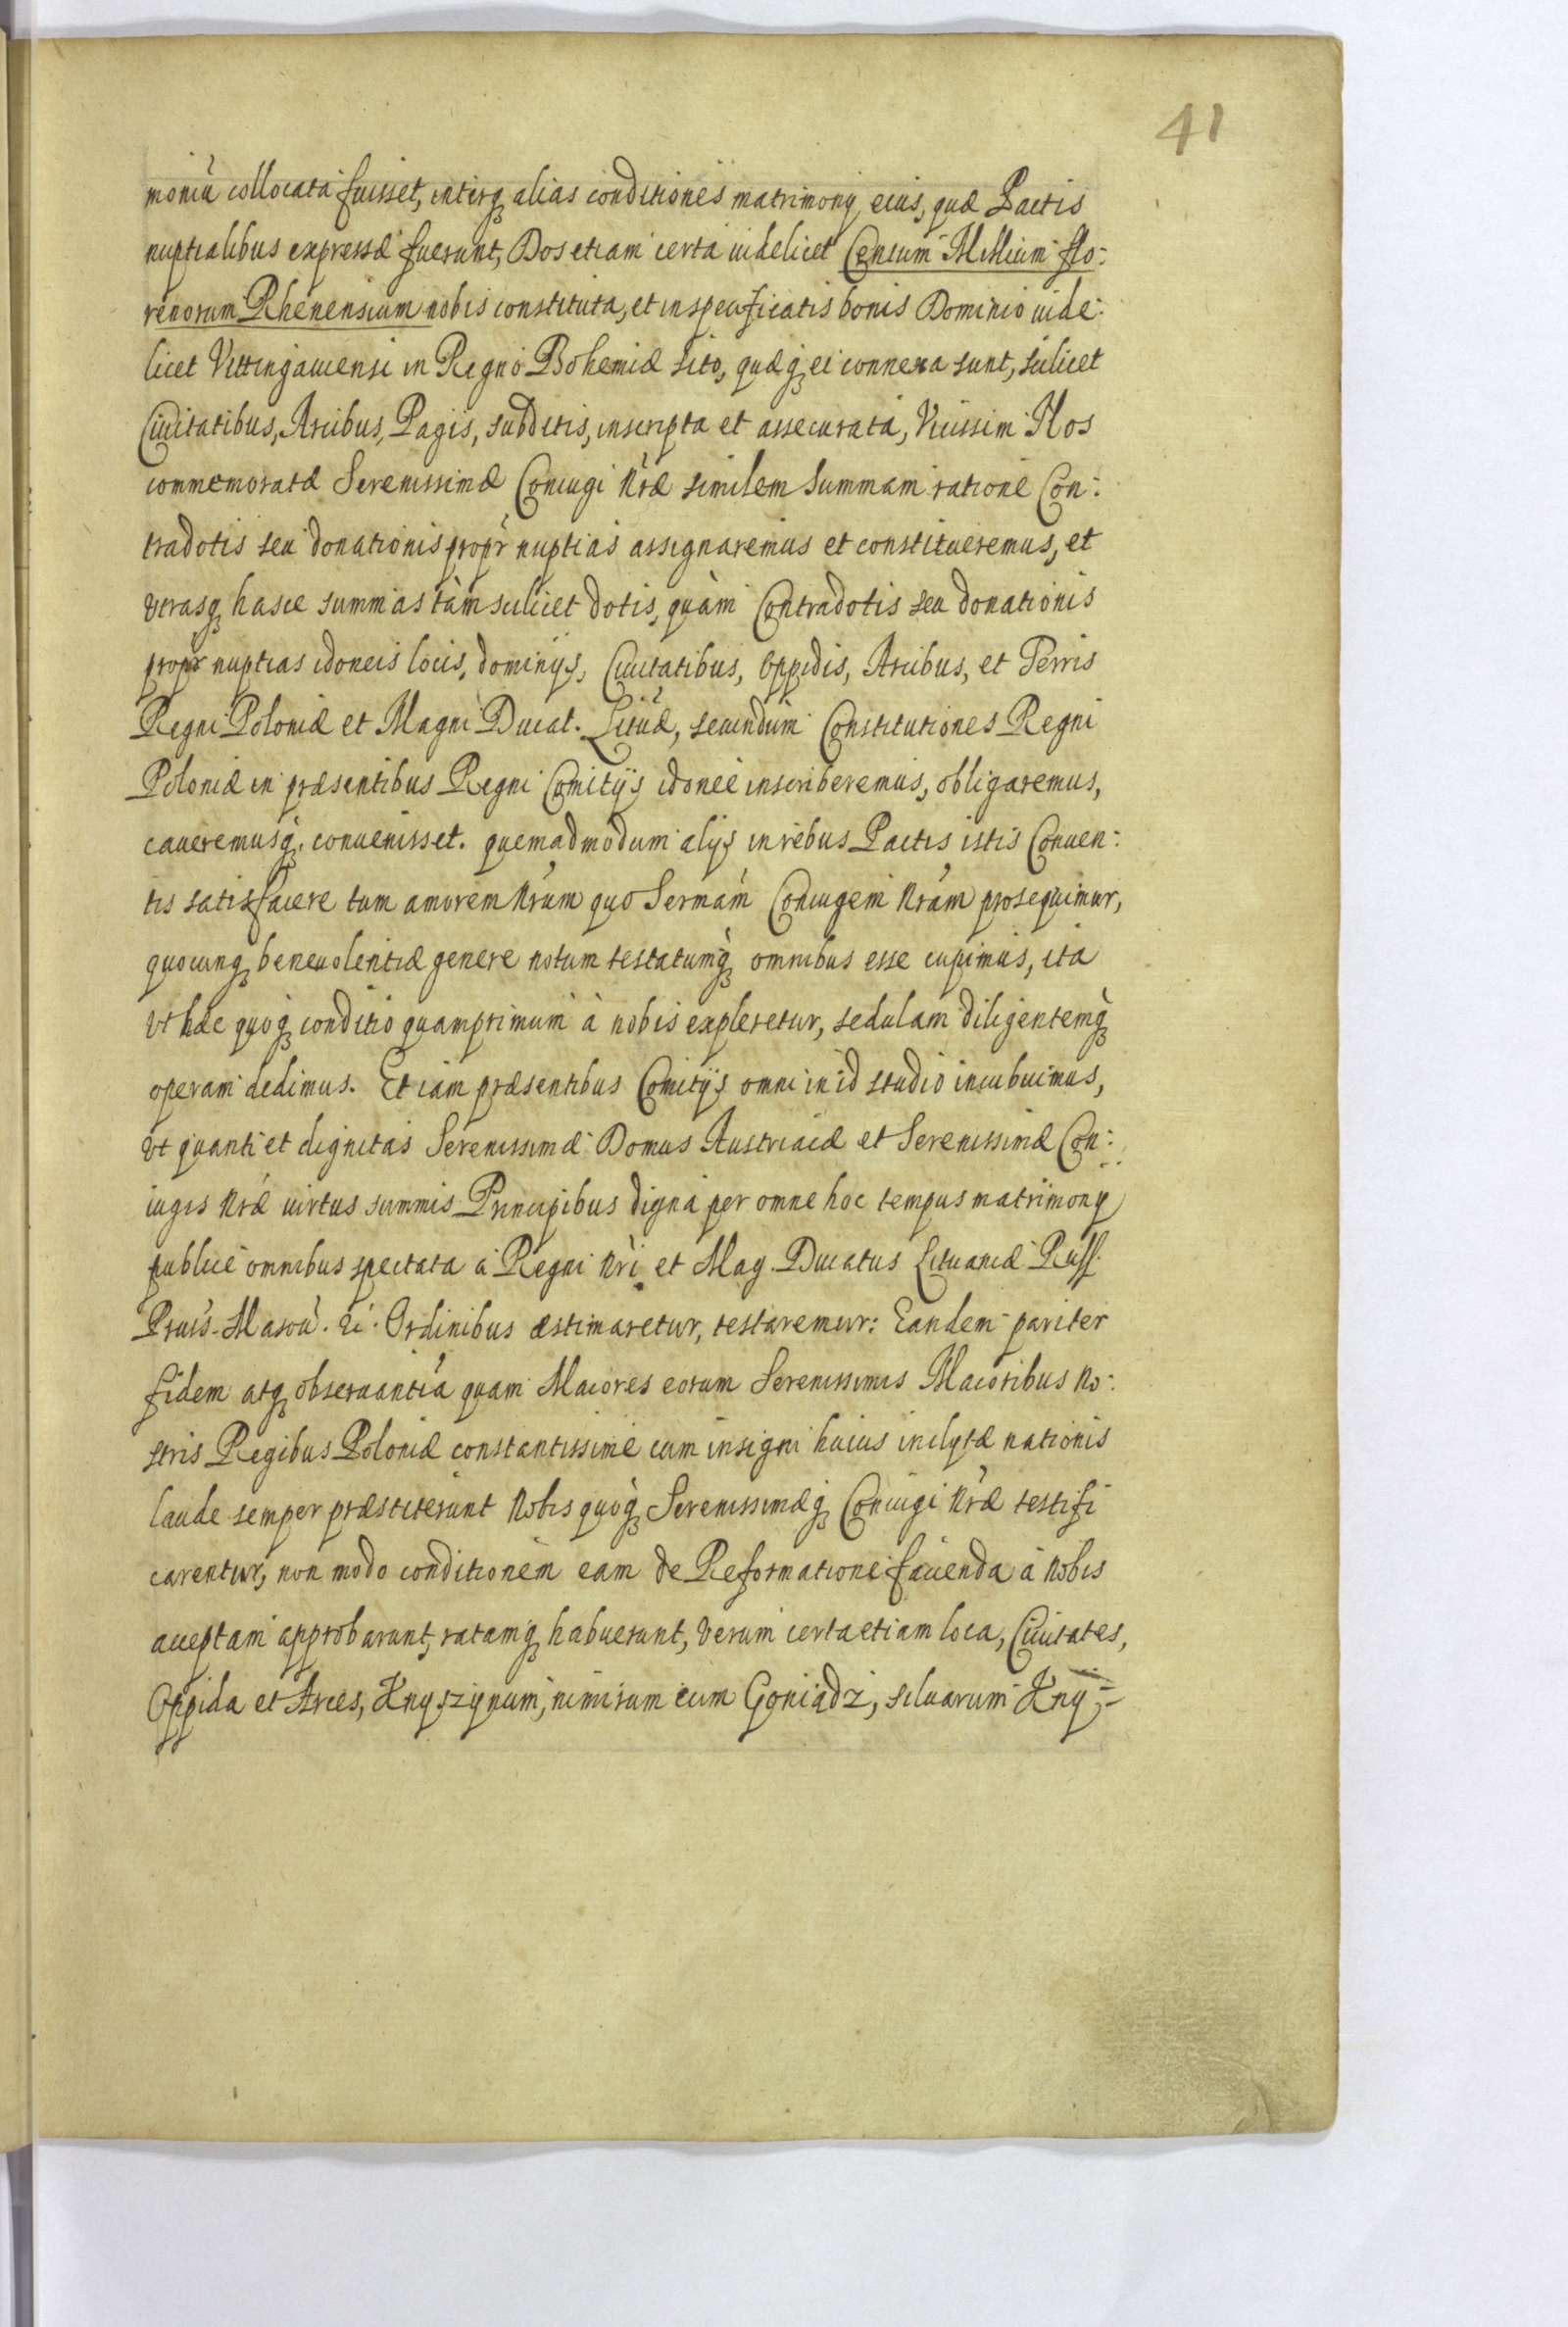 41
moniũ collocata fuisset, interq́ alias conditiones matrimonij eius, quæ Pactis
nuptialibus expressæ fuerunt, Dos etiam certa uidelicet Centum Millium flo:
renorum Rhenensium nobis constituta, et in specificatis bonis Dominio uide:
licet Vittingauiensi in Regno Bohemiæ sito, quæq́ ei connexa sunt, scilicet
Ciuitatibus, Arcibus, Pagis, subditis, inscripta et assecurata, Vicissim Nos
commemoratæ Serenissimæ Coniugi Nr̃æ similem summam ratione Con:
tradotis seu donationis propr̃ nuptias assignaremus et constitueremus, et
Vtrasq́ hasce summas tàm scilicet dotis, quàm Contradotis seu donationis
propr̃ nuptias idoneis locis, dominijs, Ciuitatibus, Oppidis, Arcibus, et Terris
Regni Poloniæ et Magni Ducat. Litũæ, secundum Constitutiones Regni
Poloniæ in præsentibus Regni Comitijs idoneè inscriberemus, obligaremus,
caueremusq́. conuenisset. quemadmodum alijs in rebus Pactis istis Conuen:
tis satisfacere tum amorem Nr̃um quo Sermam̃ Coniugem Nr̃am prosequimur,
quocunq́ beneuolentiæ genere notum testatumq́ omnibus esse cupimus, ita
Vt hæc quoq́ conditio quamprimum à nobis expleretur, sedulam diligentemq́
operam dedimus. Et iam præsentibus Comitijs omni in id studio incubuimus,
Vt quanti et dignitas Serenissimæ Domus Austriacæ et Serenissimæ Con:
iugis Nr̃æ uirtus summis Principibus digna per omne hoc tempus matrimonij
publicè omnibus spectata à Regni Nr̃i et Mag. Ducatus Lituaniæ Russ.
Pruss. Masou. &c. Ordinibus æstimaretur, testaremur: Eandem pariter
fidem atq́ obseruantiã quam Maiores eorum Serenissimis Maioribus No:
stris Regibus Poloniæ constantissimè cum insigni huius inclytæ nationis
laude semper præstiterunt Nobis quoq́ Serenissimæq́ Coniugi Nr̃æ testifi
carentur, non modo conditionem eam de Reformatione facienda à Nobis
acceptam approbarunt, ratamq́ habuerunt, Verum certa etiam loca, Ciuitates,
Oppida et Arces, Knyszynum, nimirum cum Goniądz, siluarum Kny: